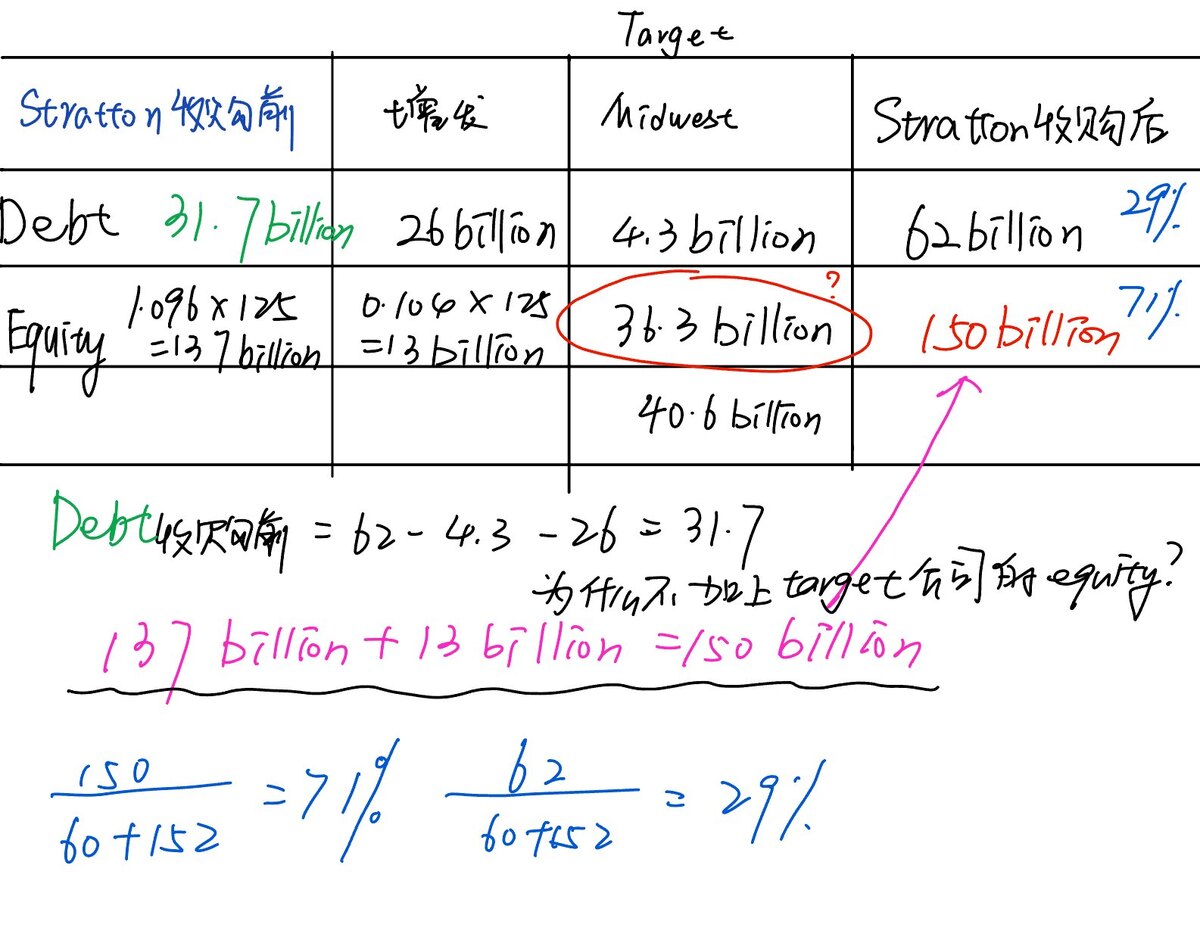 Target
Stratton收购前 增发 Midwest Stratton收购后
Debt 31.7billion 26billion 4.3billion 62billion 29%
Equity 1.096×125 0.104×125 36.3billion ? 150billion 71%
=137billion =13billion
40.6billion
Debt收购前 = 62-4.3-26=31.7
为什么不加上target公司的equity?
137billion+13billion=150billion
150/60+152 =71% 62/60+152 =29%